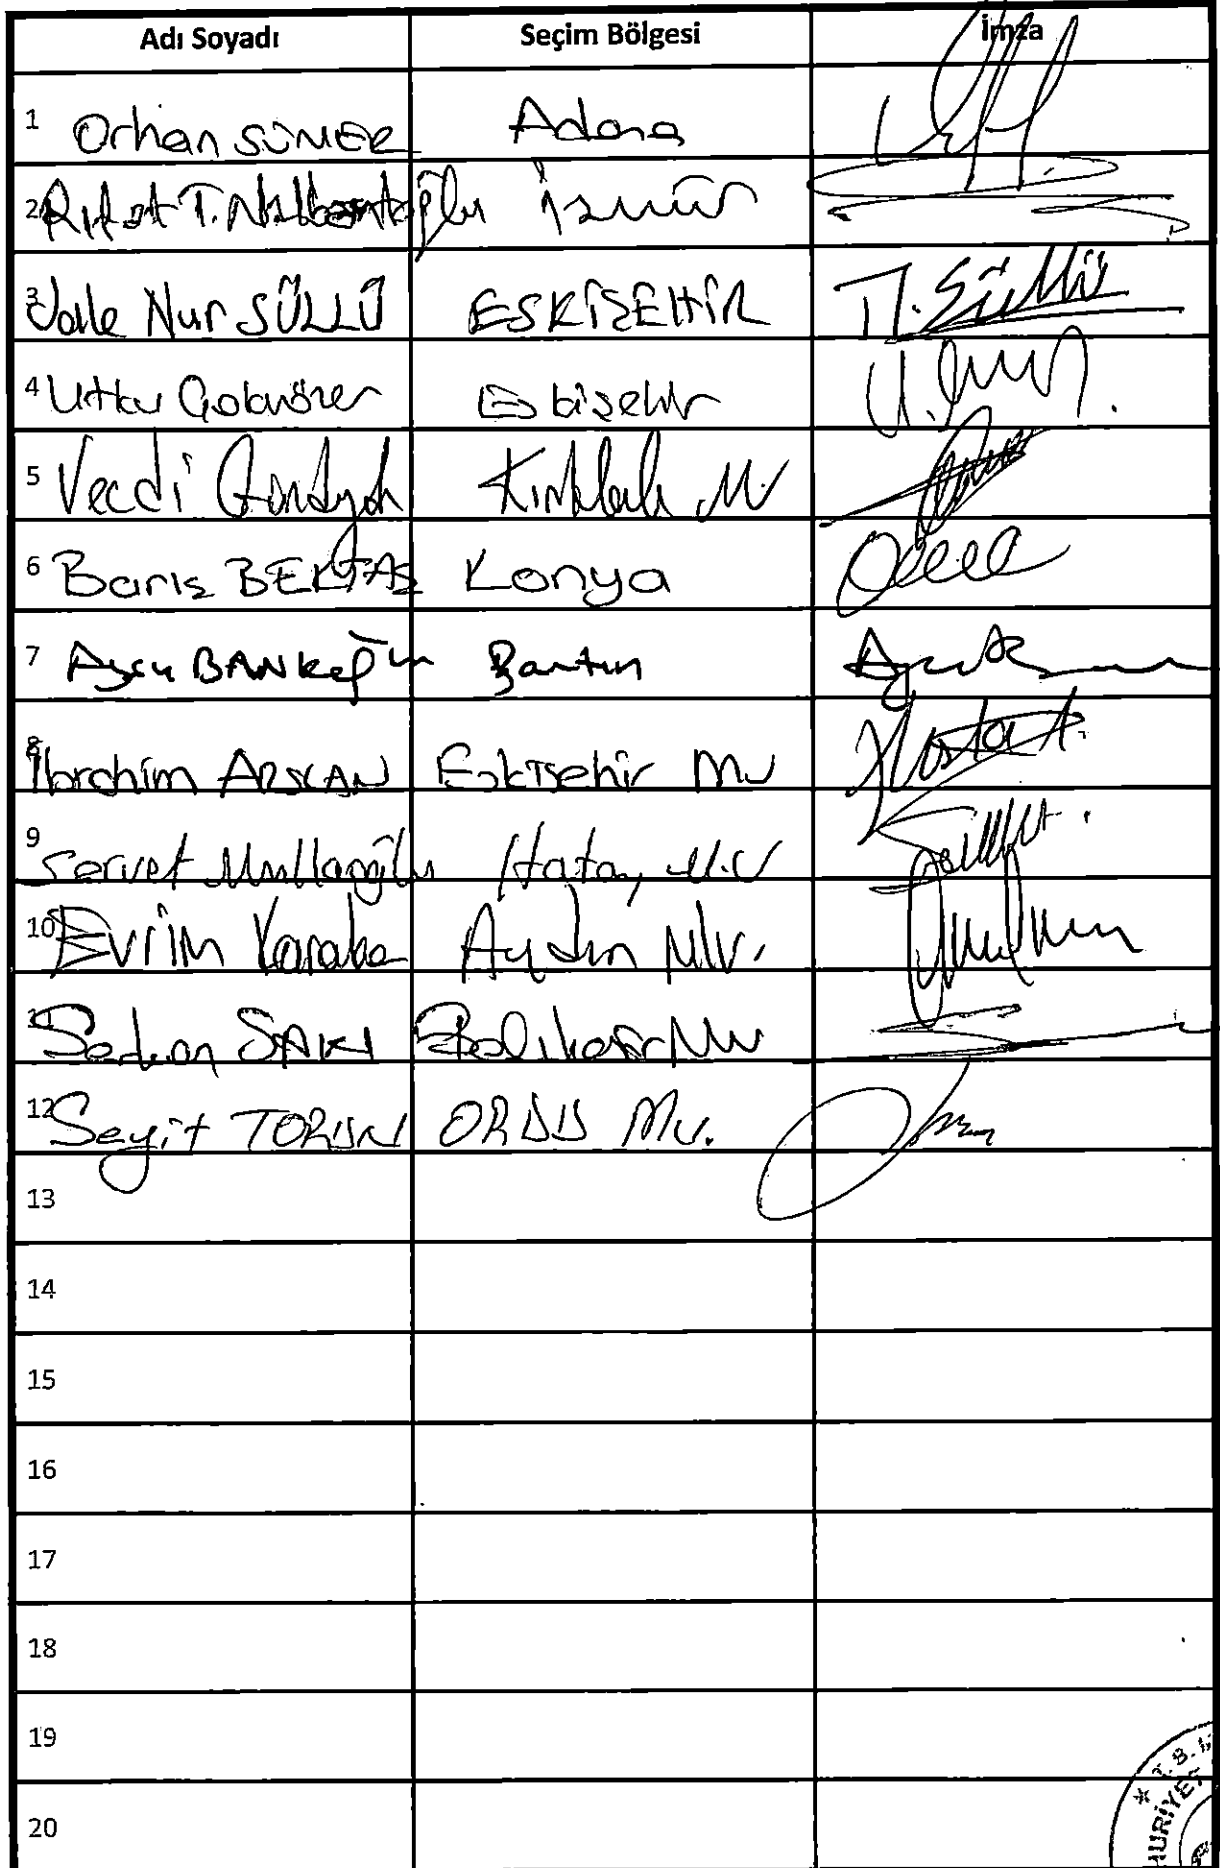 Adı Soyadı Seçim Bölgesi İmza
1 Orhan SÜMER Adana
2 Rıfat T. Nalbantoğlu İzmir
3 Jale Nur SÜLLÜ ESKİŞEHİR N. Süllü
4 Utku Çakırözer Eskişehir
5 Vecdi Gündoğdu Kırklareli M
6 Barış BEKTAŞ Konya
7 Aysu BANKOĞLU Bartın
8 İbrahim ARSLAN Eskişehir Mv
9 Servet Mullaoğlu Hatay M.V
10 Evrim Karakoz Aydın Mv.
11 Serkan SARI Balıkesir Mv
12 Seyit TORUN ORDU Mv.
13
14
15
16
17
18
19
20